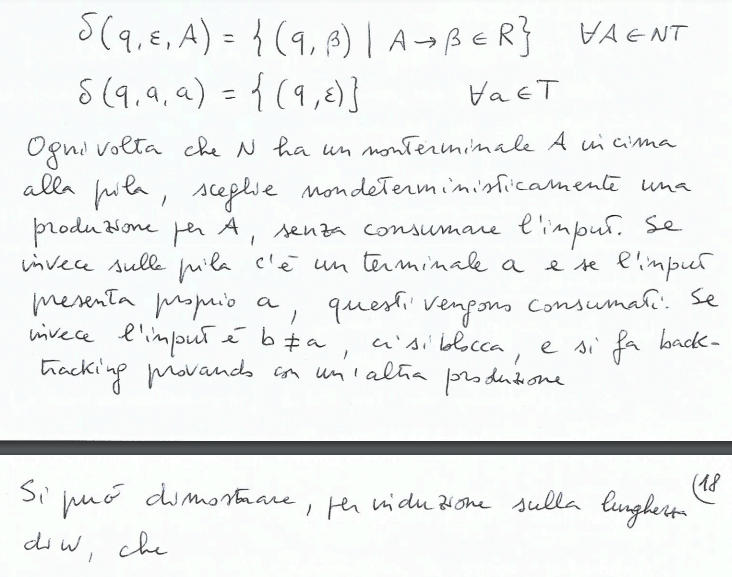 δ(q, ε, A) = {(q, β) | A → β ∈ R} ∀A ∈ NT
δ(q, a, a) = {(q, ε)} ∀a ∈ T
Ogni volta che N ha un nonterminale A in cima
alla pila, sceglie nondeterministicamente una
produzione per A, senza consumare l'input. Se
invece sulla pila c'è un terminale a e se l'input
presenta proprio a, questi vengono consumati. Se
invece l'input è b ≠ a, ci si blocca, e si fa back-
tracking provando con un'altra produzione
(18
Si può dimostrare, per induzione sulla lunghezza
di w, che